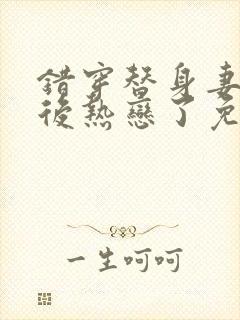 錯穿替身妻
後熱戀了免
一生呵呵